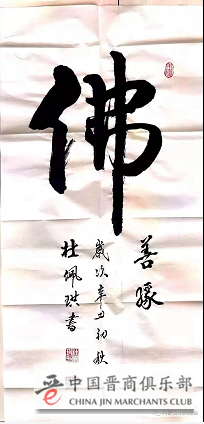 佛
善缘
岁次辛丑初秋
杜佩珙书
晋中国晋商俱乐部
CHINA JIN MARCHANTS CLUB